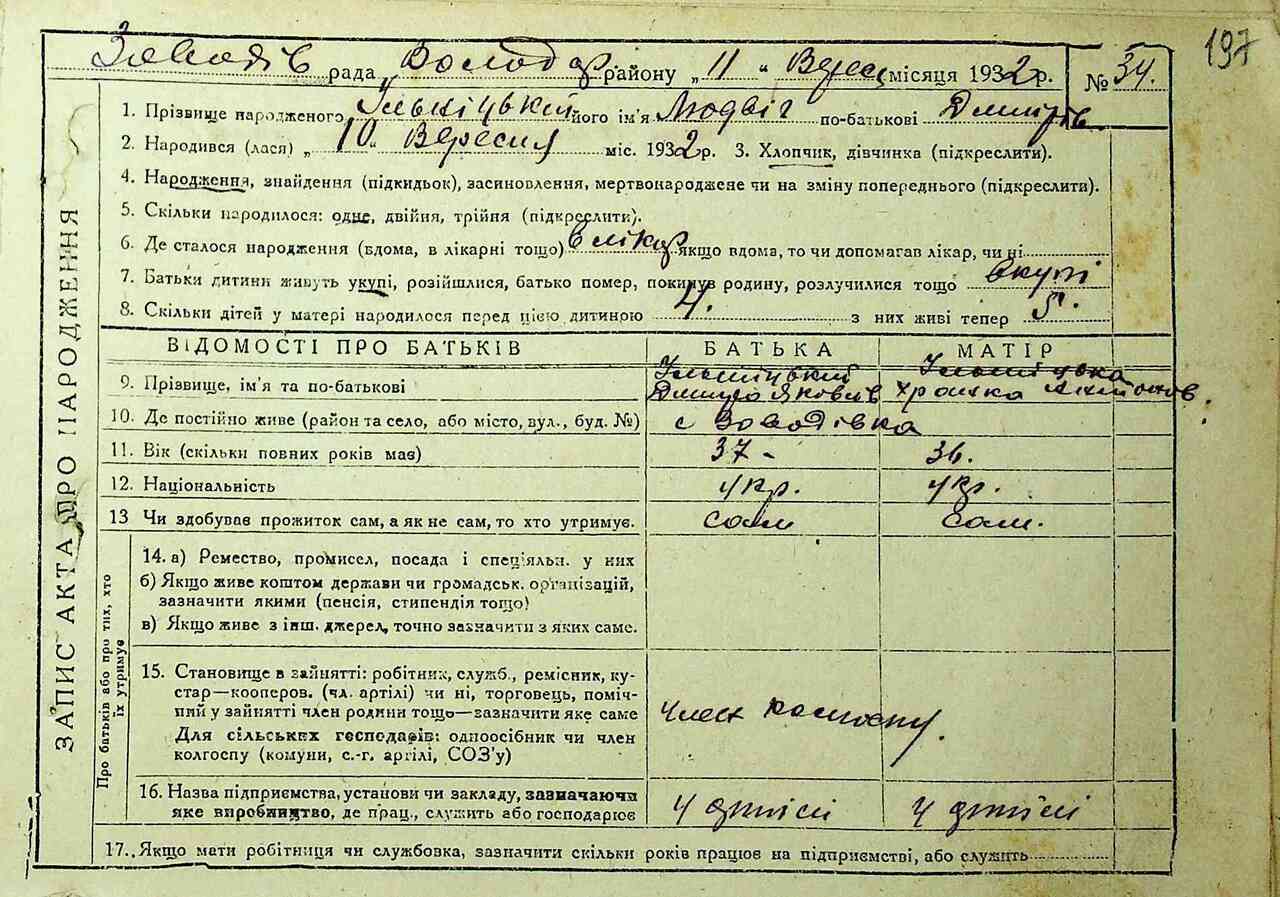 197
Заводів рада Володар району „ 11 “ Верес місяця 1932 р. № 34.
1. Прізвище народженого Ільніцький його ім'я Людвіг по-батькові Дмитрів
2. Народився (лася) „ 10 “ Вересня міс. 1932 р. 3. Хлопчик, дівчинка (підкреслити).
4. Народження, знайдення (підкидьок), засиновлення, мертвонароджене чи на зміну попереднього (підкреслити).
5. Скільки народилося: одне, двійня, трійня (підкреслити).
6. Де сталося народження (вдома, в лікарні тощо) в лікар якщо вдома, то чи допомагав лікар, чи ні
7. Батьки дитини живуть укупі, розійшлися, батько помер, покинув родину, розлучилися тощо вкупі
8. Скільки дітей у матері народилося перед цією дитиною 4. з них живі тепер 5.
ЗАПИС АКТА ПРО НАРОДЖЕННЯ
ВІДОМОСТІ ПРО БАТЬКІВ БАТЬКА МАТІР
9. Прізвище, ім'я та по-батькові Ільніцький Ільніцька
Дмитро Яковів
10. Де постійно живе (район та село, або місто, вул., буд. №) с Заводівка
11. Вік (скільки повних років має) 37 - 36.
12. Національність укр. укр.
13 Чи здобував прожиток сам, а як не сам, то хто утримує. сам сам.
Про батьків або про тих, хто
їх утримує
14. а) Ремество, промисел, посада і спеціяльн. у них
б) Якщо живе коштом держави чи громадськ. організацій,
зазначити якими (пенсія, стипендія тощо)
в) Якщо живе з інш. джерел, точно зазначити з яких саме.
15. Становище в зайнятті: робітник, служб., ремісник, ку-
стар—кооперов. (чл. артілі) чи ні, торговець, поміч-
ний у зайнятті член родини тощо—зазначити яке саме
Для сільських господарів: одноосібник чи член
колгоспу (комуни, с.-г. артілі, СОЗ'у)
член колгоспу.
16. Назва підприємства, установи чи закладу, зазначаючи
яке виробництво, де прац., служить або господарює
17. Якщо мати робітниця чи службовка, зазначити скільки років працює на підприємстві, або служить